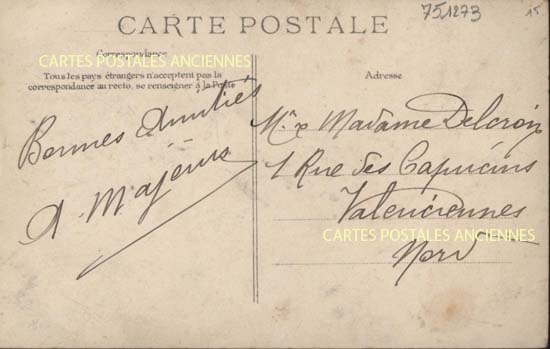 CARTE POSTALE
751273
15
Correspondance
CARTES POSTALES ANCIENNES
Tous les pays étrangers n'acceptent pas la
correspondance au recto, se renseigner à la Poste
Adresse
Bonnes Amitiés
A. Majérus
Mr & Madame Delcroix
1 Rue des Capucins
Valenciennes
CARTES POSTALES ANCIENNES
Nord